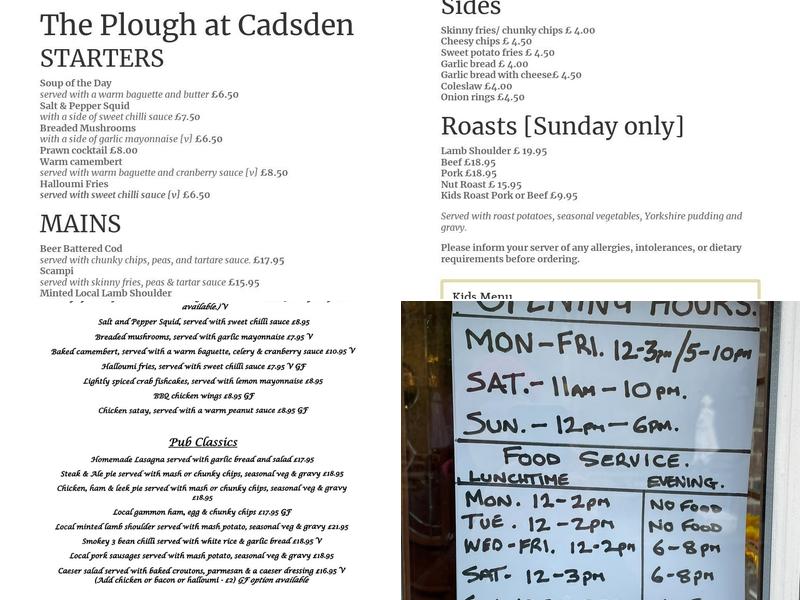 The Plough at Cadsden
STARTERS
Soup of the Day
served with a warm baguette and butter £6.50
Salt & Pepper Squid
with a side of sweet chilli sauce £7.50
Breaded Mushrooms
with a side of garlic mayonnaise [v] £6.50
Prawn cocktail £8.00
Warm camembert
served with warm baguette and cranberry sauce [v] £8.50
Halloumi Fries
served with sweet chilli sauce [v] £6.50
MAINS
Beer Battered Cod
served with chunky chips, peas, and tartare sauce. £17.95
Scampi
served with skinny fries, peas & tartar sauce £15.95
Minted Local Lamb Shoulder
Sides
Skinny fries/ chunky chips £ 4.00
Cheesy chips £ 4.50
Sweet potato fries £ 4.50
Garlic bread £ 4.00
Garlic bread with cheese£ 4.50
Coleslaw £4.00
Onion rings £4.50
Roasts [Sunday only]
Lamb Shoulder £ 19.95
Beef £18.95
Pork £18.95
Nut Roast £ 15.95
Kids Roast Pork or Beef £9.95
Served with roast potatoes, seasonal vegetables, Yorkshire pudding and
gravy.
Please inform your server of any allergies, intolerances, or dietary
requirements before ordering.
Kids Menu
available.)'V
Salt and Pepper Squid, served with sweet chilli sauce £8.95
Breaded mushrooms, served with garlic mayonnaise £7.95 'V
Baked camembert, served with a warm baguette, celery & cranberry sauce £10.95 'V
Halloumi fries, served with sweet chilli sauce £7.95 'V GF
Lightly spiced crab fishcakes, served with lemon mayonnaise £8.95
BBQ chicken wings £8.95 GF
Chicken satay, served with a warm peanut sauce £8.95 GF
Pub Classics
Homemade Lasagna served with garlic bread and salad £17.95
Steak & Ale pie served with mash or chunky chips, seasonal veg & gravy £18.95
Chicken, ham & leek pie served with mash or chunky chips, seasonal veg & gravy
£18.95
Local gammon ham, egg & chunky chips £17.95 GF
Local minted lamb shoulder served with mash potato, seasonal veg & gravy £21.95
Smokey 3 bean chilli served with white rice & garlic bread £18.95 'V
Local pork sausages served with mash potato, seasonal veg & gravy £18.95
Caesar salad served with baked croutons, parmesan & a caeser dressing £16.95 'V
(Add chicken or bacon or halloumi - £2) GF option available
OPENING HOURS.
MON-FRI. 12-3pm/5-10pm
SAT.- 11AM - 10PM.
SUN. - 12PM - 6PM.
FOOD SERVICE.
LUNCHTIME EVENING.
MON. 12-2pm NO FOOD
TUE. 12-2PM NO FOOD
WED-FRI. 12-2PM 6-8PM
SAT- 12-3PM 6-8PM